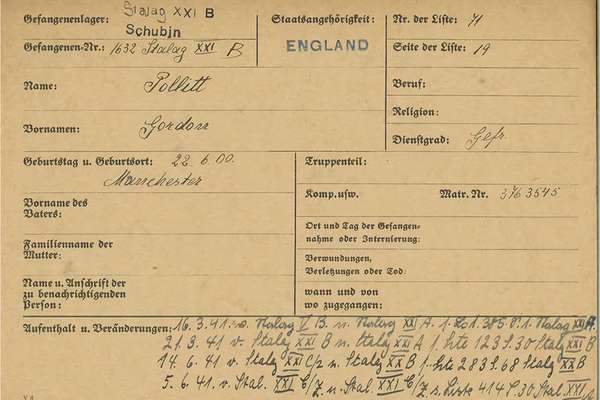 Gefangenenlager: Stalag XXI B Schubin
Gefangenen-Nr.: 1632 Stalag XXI B
Staatsangehörigkeit:
ENGLAND
Nr. der Liste: 71
Seite der Liste: 19
Name: Pollitt
Vornamen: Gordon
Beruf:
Religion:
Dienstgrad: Gefr.
Geburtstag u. Geburtsort: 22.6.00.
Manchester
Vorname des
Vaters:
Familienname der
Mutter:
Name u. Anschrift der
zu benachrichtigenden
Person:
Truppenteil:
Komp. usw. Matr. Nr. 3763545
Ort und Tag der Gefangen-
nahme oder Internierung:
Verwundungen,
Verletzungen oder Tod:
wann und von
wo zugegangen:
Aufenthalt u. Veränderungen: 16.3.41. v. Stalag B. n. Stalag XXI A. Stalag XXI A.
21.3.41 v. Stalag XXI B n. Stalag XXI A 1. Liste 123 S. 30 Stalag XXI B
14.6.41 v. Stalag XXI C/z n. Stalag XX B 1. Liste 283 S. 68 Stalag XX B
5.6.41 v. Stal. XXI C/Z n. Stal. XXI C/Z s. Liste 414 S. 30 Stal. XXI